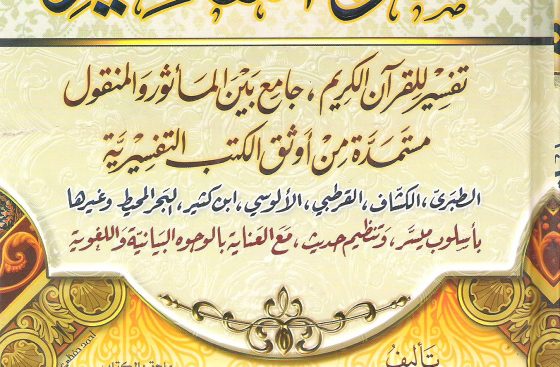 تفسير للقرآن الكريم، جامع بين المأثور والمنقول
مستمدة من أوثق الكتب التفسيرية
الطبري، الكشاف، القرطبي، الألوسي، ابن كثير، البحر المحيط وغيرها
بأسلوب ميسر، وتنظيم حديث، مع العناية بالوجوه البيانية واللغوية
تأليف